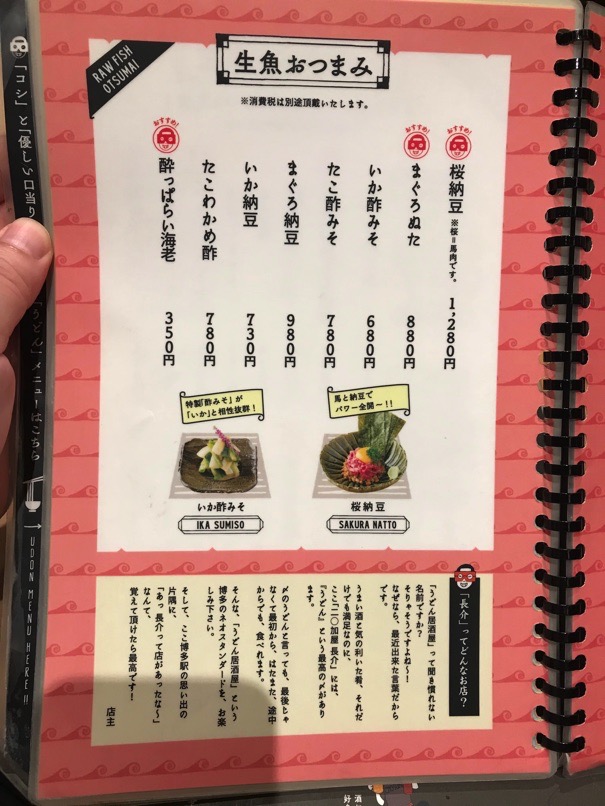 RAW FISH
OTSUMAI
生魚おつまみ
※消費税は別途頂戴いたします。
おすすめ!
桜納豆 ※桜=馬肉です。 1,280円
おすすめ!
まぐろぬた 880円
いか酢みそ 680円
たこ酢みそ 780円
まぐろ納豆 980円
いか納豆 730円
たこわかめ酢 780円
おすすめ!
酔っぱらい海老 350円
特製「酢みそ」が
「いか」と相性抜群!
いか酢みそ
IKA SUMISO
馬と納豆で
パワー全開〜!!
桜納豆
SAKURA NATTO
「長介」ってどんなお店?
「うどん居酒屋」って聞き慣れない
名前ですか?
そりゃそうですよね〜!
なぜなら、最近出来た言葉だから
です。
うまい酒と気の利いた肴、それだ
けでも満足なのに、
ここ「二〇加屋長介」には、
『うどん』という最高の〆があり
ます。
〆のうどんと言っても、最後じゃ
なくて最初から、はたまた、途中
からでも、食べれます。
そんな、「うどん居酒屋」という
博多のネオスタンダードを、お楽
しみ下さい。
そして、ここ博多駅の思い出の
片隅に、
「あっ長介って店があったな〜」
なんて、
覚えて頂けたら最高です!
店主
「コシ」と「優しい口当り
「うどん」メニューはこちら
UDON MENU HERE!!